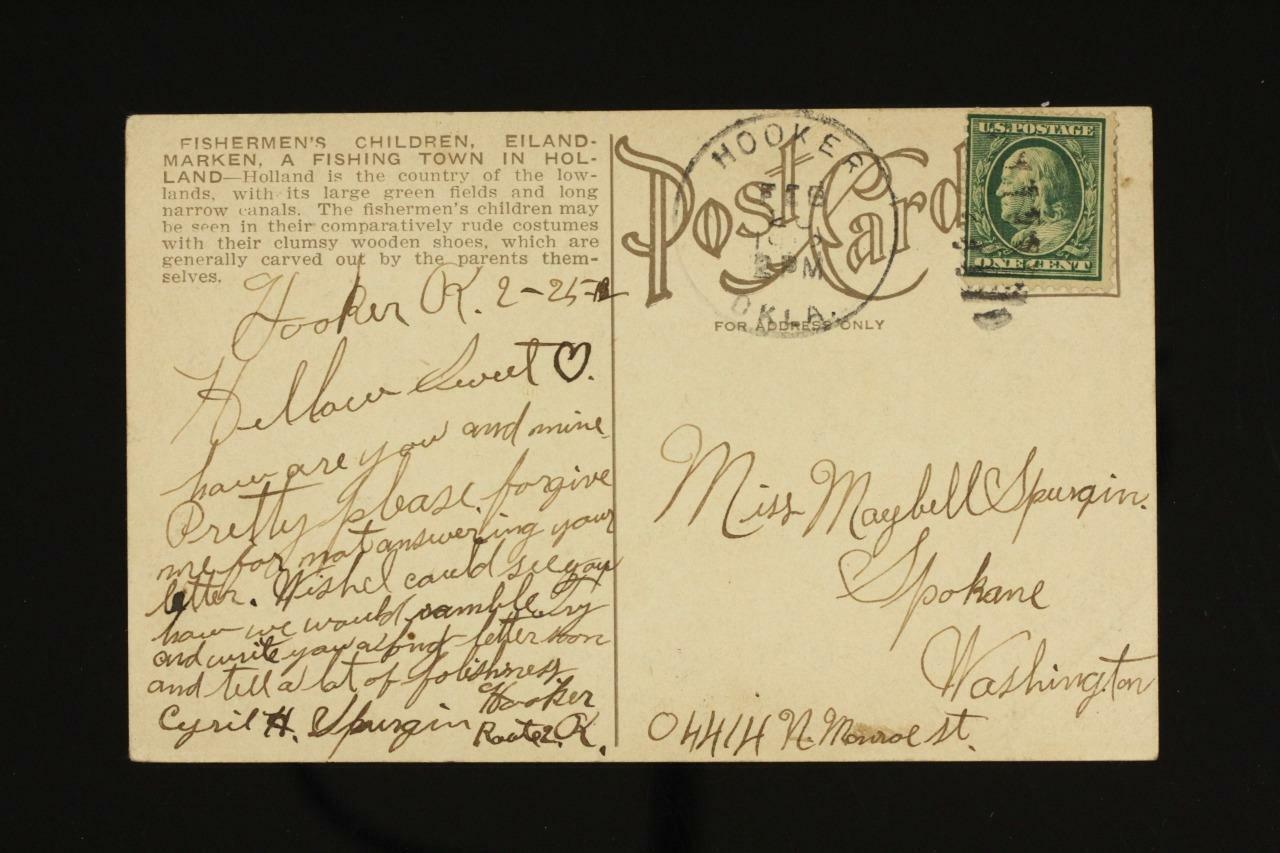 FISHERMEN'S CHILDREN, EILAND-
MARKEN, A FISHING TOWN IN HOL-
LAND—Holland is the country of the low-
lands, with its large green fields and long
narrow canals. The fishermen's children may
be seen in their comparatively rude costumes
with their clumsy wooden shoes, which are
generally carved out by the parents them-
selves.
Hooker K. 2-25-12
Hellow Sweet ♡.
how are you and mine
Pretty please forgive
me for not answering your
letter. Wish I could see you
how we would ramble Try
and write you a long letter soon
and tell a lot of folishness
Cyril H. Spurgin Hooker
Route 2. K.
Post Card
HOOKER
FEB
PM
OKLA.
U.S. POSTAGE
ONE CENT
FOR ADDRESS ONLY
Miss Maybell Spurgin.
Spokane
Washington
04414 N. Monroe st.